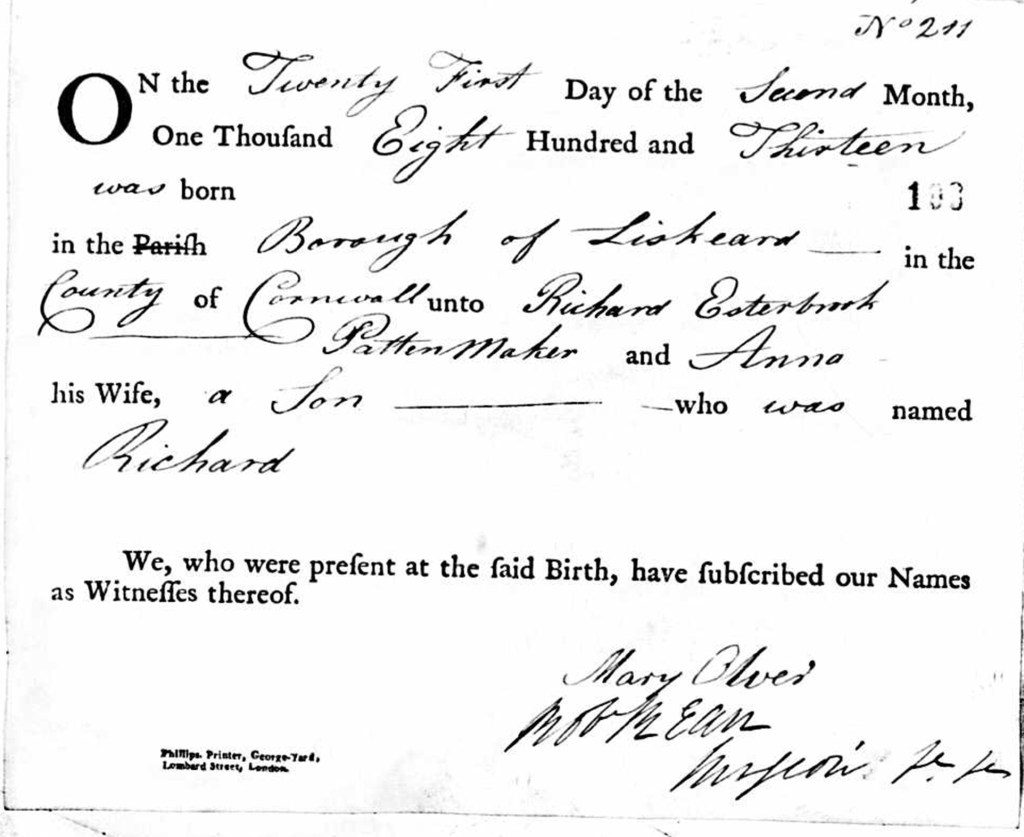 No 211
ON the Twenty First Day of the Second Month,
One Thouſand Eight Hundred and Thirteen
was born 103
in the Pariſh Borough of Liskeard in the
County of Cornwall unto Richard Esterbrook
Patten Maker and Anna
his Wife, a Son who was named
Richard
We, who were preſent at the ſaid Birth, have ſubſcribed our Names
as Witneſſes thereof.
Mary Olver
Surgeon
Phillips, Printer, George-Yard,
Lombard Street, London.